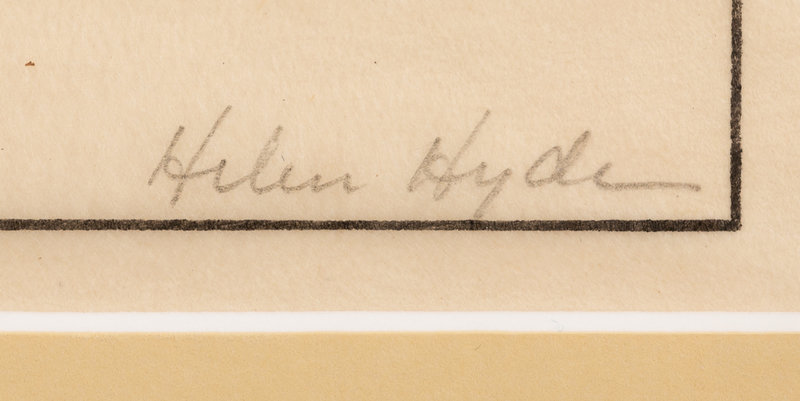 Helen Hyde